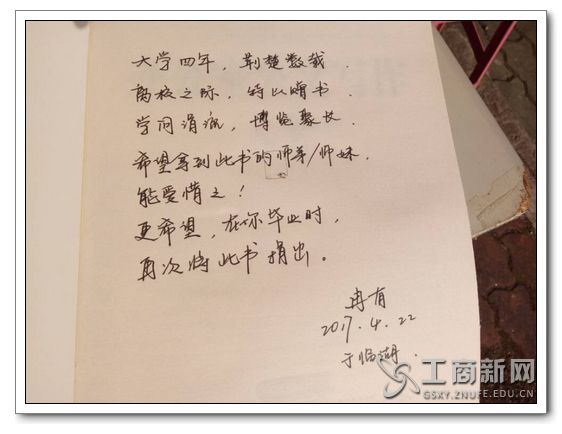 大学四年，荆楚数载．
离校之际，特以赠书．
学问涓流，博览聚长
希望拿到此书的师弟/师妹．
能爱惜之！
更希望，在你毕业时，
再次将此书捐出。
冉有
2017.4.22
于临湖．
工商新网
GSXY.ZNUFE.EDU.CN